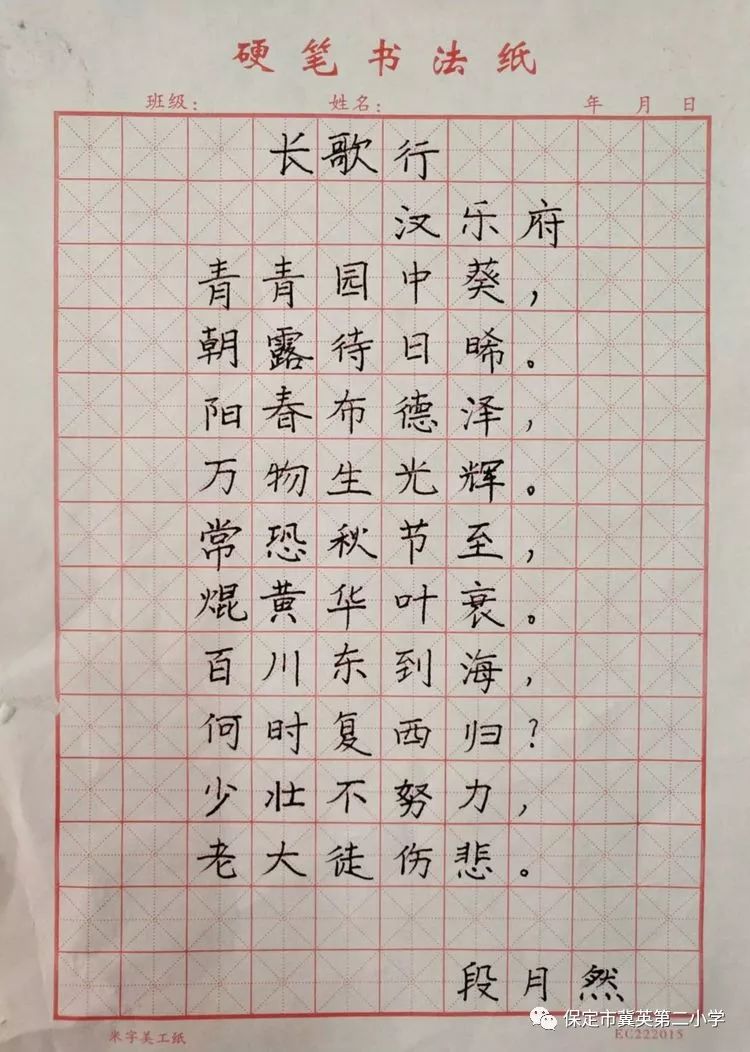 硬笔书法纸
班级： 姓名： 年 月 日
长歌行
汉乐府
青青园中葵，
朝露待日晞。
阳春布德泽，
万物生光辉。
常恐秋节至，
焜黄华叶衰。
百川东到海，
何时复西归？
少壮不努力，
老大徒伤悲。
段月然
保定市冀英第二小学
米字美工纸 EC222015